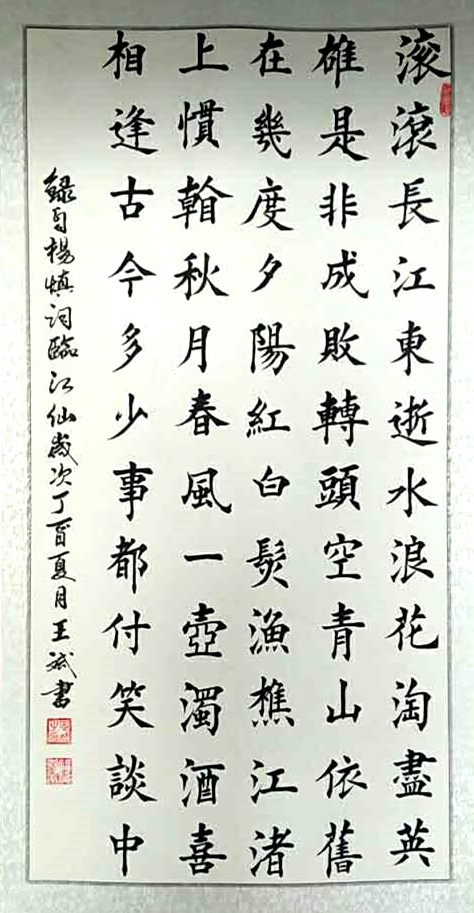 滚滾長江東逝水浪花淘盡英
雄是非成敗轉頭空青山依舊
在幾度夕陽紅白髮漁樵江渚
上慣看秋月春風一壺濁酒喜
相逢古今多少事都付笑談中
録自楊慎詞臨江仙歲次丁酉夏月王斌書